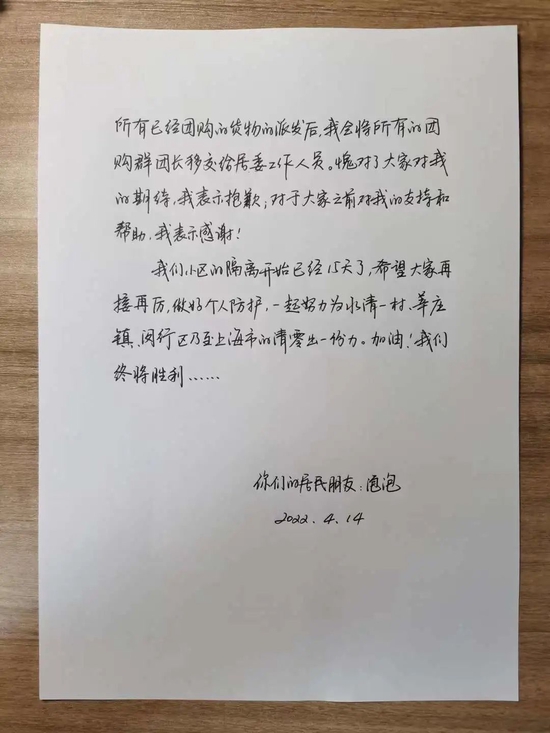 所有已经团购的货物的派发后，我会将所有的团
购群团长移交给居委工作人员。愧对了大家对我
的期待，我表示抱歉；对于大家之前对我的支持和
帮助，我表示感谢！
我们小区的隔离开始已经15天了，希望大家再
接再厉，做好个人防护，一起努力为水清一村、莘庄
镇、闵行区乃至上海市的清零出一份力。加油！我们
终将胜利……
你们的居民朋友：泡泡
2022.4.14